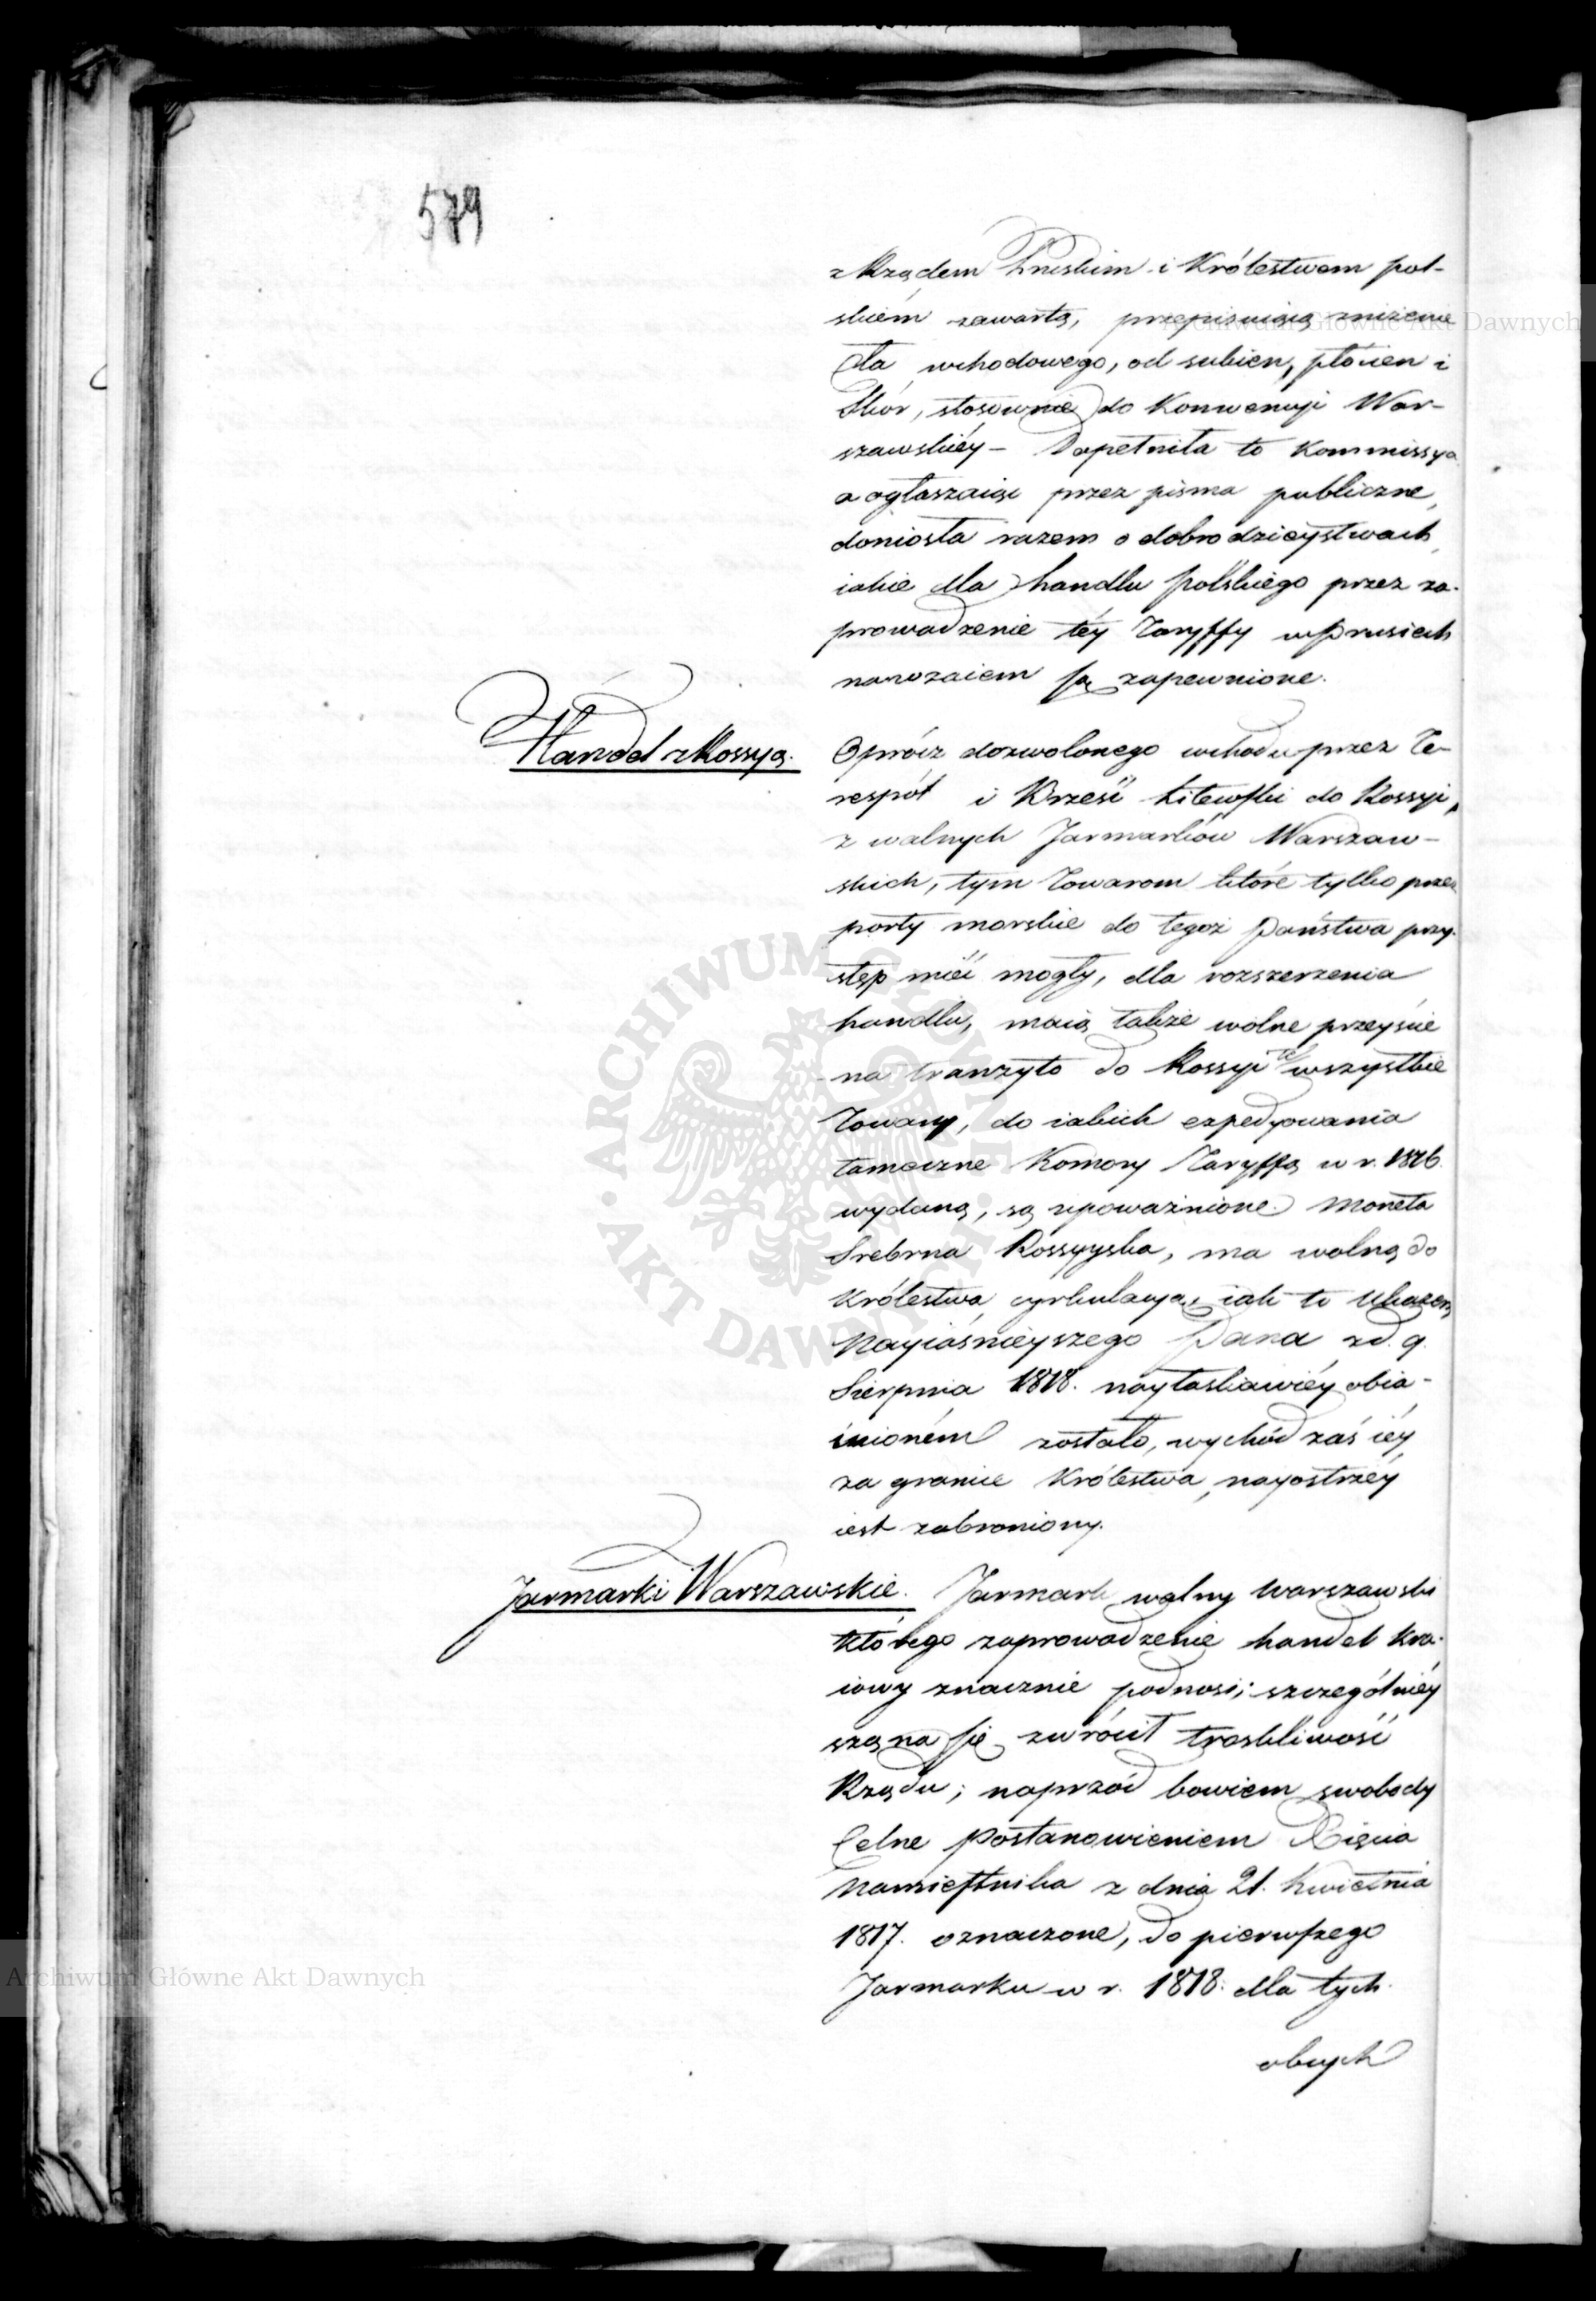 579
z Rządem Pruskim i Królestwem pol-
skiém zawartą, przepisuiącą zniżenie
Cła wchodowego, od sukien, płócien i
Skór, stosownie do Konwencyi War-
szawskiéy – Dopełniła to Kommissya
a ogłaszaiąc przez pisma publiczne,
doniosła razem o dobrodzieystwach
iakie dla handlu Polskiego przez za-
prowadzenie téy Taryffy w Prusiech
nawzaiem są zapewnione.
Handel z Rossyą.
Oprócz dozwolonego wchodu przez Te-
respól i Brześć Litewski do Rossyi,
z walnych Jarmarków Warszaw-
skich, tym Towarom które tylko przez
porty morskie do tegoż Państwa przy-
stęp mieć mogły, dla rozszerzenia
handlu, maią także wolne przeyście
na tranzyto do Rossyi te wszystkie
Towary, do iakich expedyowania
tameczne Komory Taryffą w r. 1816.
wydaną, są upoważnione. Moneta
Srebrna Rossyyska, ma wolną do
Królestwa cyrkulacyą, iak to Ukazem
Nayiaśnieyszego Pana z d. 9.
Sierpnia 1818. nayłaskawiéy obia-
śnioném zostało, wychód zaś iéy
za granice Królestwa, nayostrzéy
iest zabroniony.
Jarmarki Warszawskie.
Jarmark walny Warszawski
którego zaprowadzenie handel kra-
iowy znacznie podnosi; szczególniéy
szą na się zwrócił troskliwość
Rządu; naprzód bowiem swobody
Celne Postanowieniem Xięcia
Namiestnika z dnia 21. Kwietnia
1817. oznaczone, do pierwszego
Jarmarku w r. 1818. dla tych
obcych
Archiwum Główne Akt Dawnych
Archiwum Główne Akt Dawnych
ARCHIWUM GŁÓWNE AKT DAWNYCH